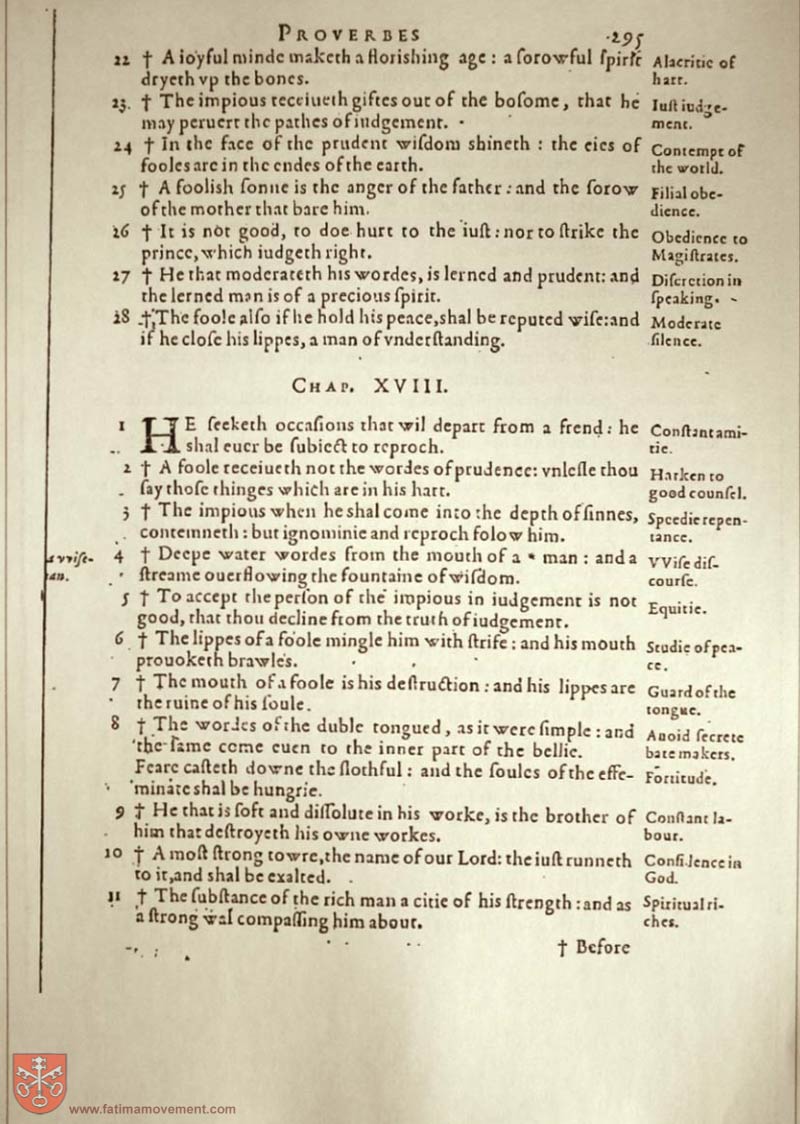 PROVERBES 295
22 † A ioyful minde maketh a florishing age: a sorowful spirit
dryeth vp the bones.
Alacritie of
hart.
23. † The impious receiueth giftes out of the bosome, that he
may peruert the pathes of iudgement.
Iust iudge-
ment.
24 † In the face of the prudent wisdom shineth: the eies of
fooles are in the endes of the earth.
Contempt of
the world.
25 † A foolish sonne is the anger of the father: and the sorow
of the mother that bare him.
Filial obe-
dience.
26 † It is not good, to doe hurt to the iust: nor to strike the
prince, which iudgeth right.
Obedience to
Magistrates.
27 † He that moderateth his wordes, is lerned and prudent: and
the lerned man is of a precious spirit.
Discretion in
speaking.
28 † The foole also if he hold his peace, shal be reputed wise: and
if he close his lippes, a man of vnderstanding.
Moderate
silence.
CHAP. XVIII.
1 HE seeketh occasions that wil depart from a frend: he
shal euer be subiect to reproch.
Constant ami-
tie.
2 † A foole receiueth not the wordes of prudence: vnlesse thou
say those thinges which are in his hart.
Harken to
good counsel.
3 † The impious when he shal come into the depth of sinnes,
contemneth: but ignominie and reproch folow him.
Speedie repen-
tance.
4 † Deepe water wordes from the mouth of a * man: and a
streame ouerflowing the fountaine of wisdom.
a vvise-
an.
VVise dis-
course.
5 † To accept the person of the impious in iudgement is not
good, that thou decline from the truth of iudgement.
Equitie.
6 † The lippes of a foole mingle him with strife: and his mouth
prouoketh brawles.
Studie of pea-
ce.
7 † The mouth of a foole is his destruction: and his lippes are
the ruine of his soule.
Guard of the
tongue.
8 † The wordes of the duble tongued, as it were simple: and
the same come euen to the inner part of the bellie.
Auoid secrete
bate makers.
Feare casteth downe the slothful: and the soules of the effe-
minate shal be hungrie.
Fortitude.
9 † He that is soft and dissolute in his worke, is the brother of
him that destroyeth his owne workes.
Constant la-
bour.
10 † A most strong towre, the name of our Lord: the iust runneth
to it, and shal be exalted.
Confidence in
God.
11 † The substance of the rich man a citie of his strength: and as
a strong wal compassing him about.
Spiritual ri-
ches.
† Before
www.fatimamovement.com